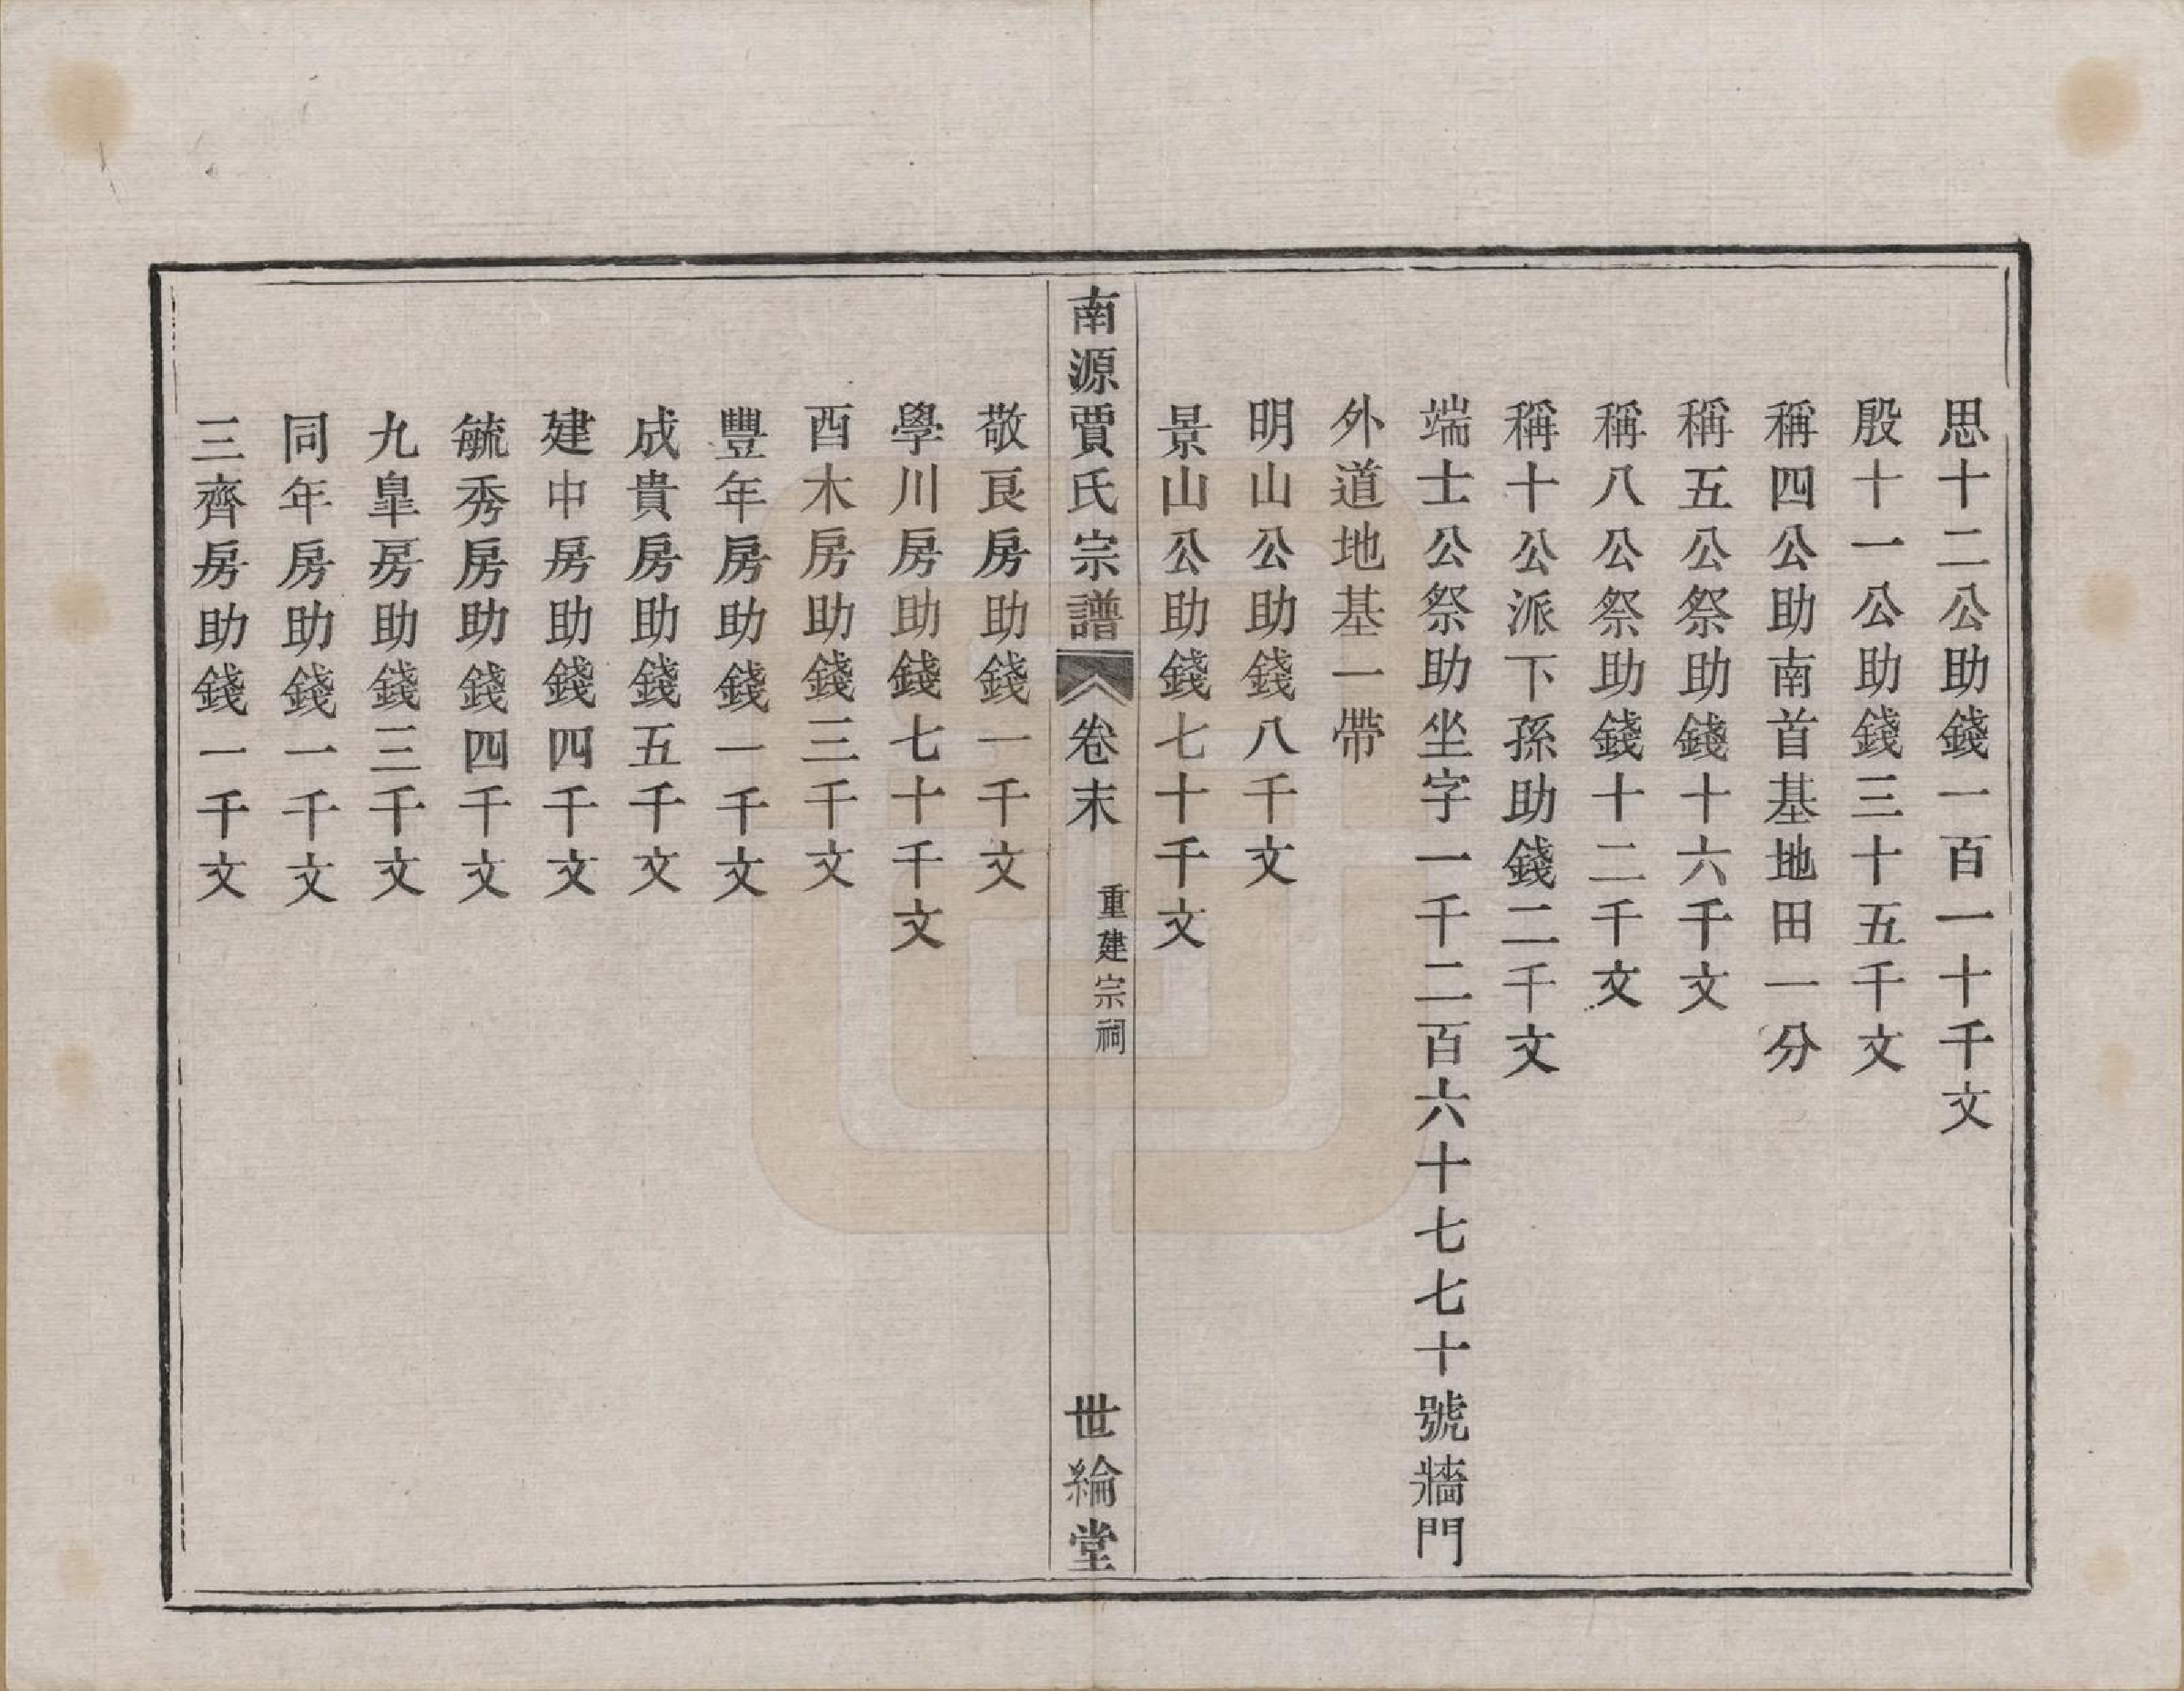 思十二公助錢一百一十千文
殷十一公助錢三十五千文
稱四公助南首基地田一分
稱五公祭助錢十六千文
稱八公祭助錢十二千文
稱十公派下孫助錢二千文
端士公祭助坐字一千二百六十七七十號牆門
外道地基一帶
明山公助錢八千文
景山公助錢七十千文
南源賈氏宗譜 卷末 重建宗祠 世綸堂
敬良房助錢一千文
學川房助錢七十千文
酉木房助錢三千文
豐年房助錢一千文
成貴房助錢五千文
建中房助錢四千文
毓秀房助錢四千文
九臯房助錢三千文
同年房助錢一千文
三齊房助錢一千文